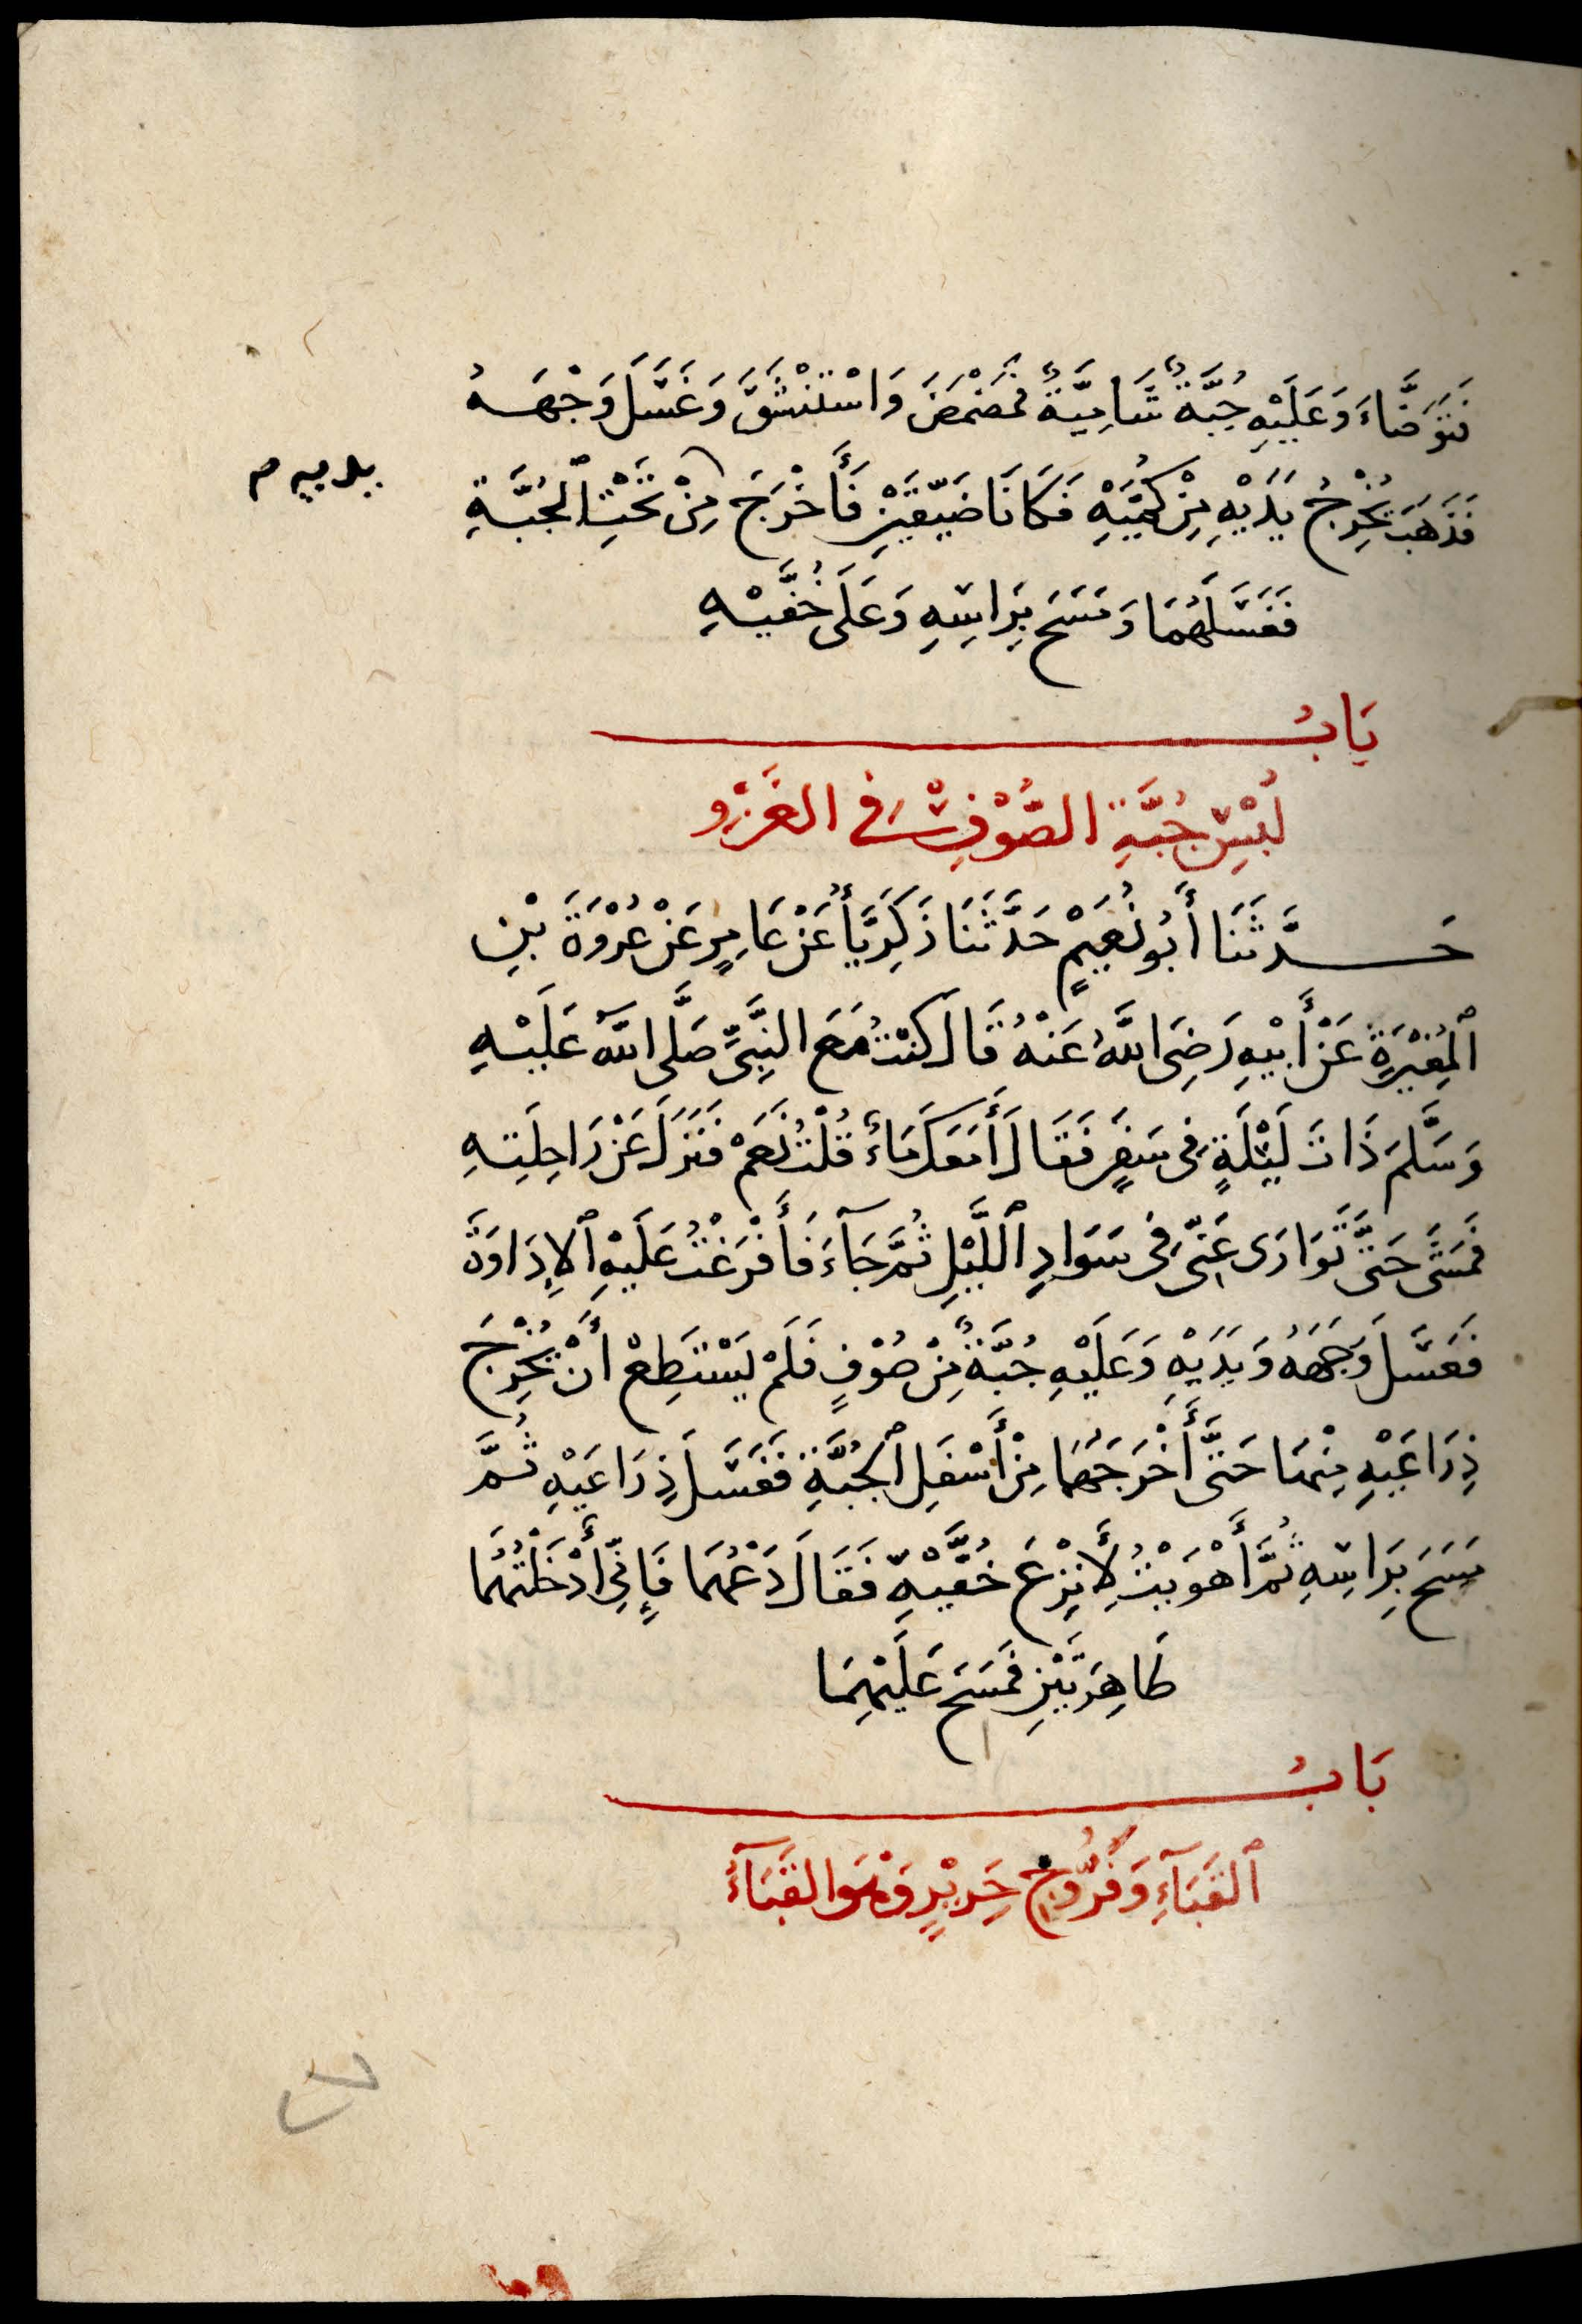 فَتَوَضَّاءَ وَعَلَيْهِ جُبَّةٌ شَامِيَّةٌ فَمَضْمَضَ وَاسْتَنْشَقَ وَغَسَلَ وَجْهَهُ
فَذَهَبَ يُخْرِجُ يَدَيْهِ مِنْ كُمَّيْهِ فَكَانَا ضَيِّقَيْنِ فَأَخْرَجَ مِنْ تَحْتِ الْجُبَّةِ
يديه م
فَغَسَلَهُمَا وَمَسَحَ بِرَاسِهِ وَعَلَى خُفَّيْهِ
بَابُ
لُبْسِ جُبَّةِ الصُّوْفِ فِي الغَزْوِ
حَدَّثَنَا أَبُو نُعَيْمٍ حَدَّثَنَا زَكَرِيَّأُ عَنْ عَامِرٍ عَنْ عُرْوَةَ بْنِ
الْمُغِيْرَةِ عَنْ أَبِيْهِ رَضِيَ اللَّهُ عَنْهُ قَالَ كُنْتُ مَعَ النَّبِيِّ صَلَّى اللَّهُ عَلَيْهِ
وَسَلَّمَ ذَاتَ لَيْلَةٍ فِي سَفَرٍ فَقَالَ أَمَعَكَ مَاءٌ قُلْتُ نَعَمْ فَنَزَلَ عَنْ رَاحِلَتِهِ
فَمَشَى حَتَّى تَوَارَى عَنِّي فِي سَوَادِ اللَّيْلِ ثُمَّ جَآءَ فَأَفْرَغْتُ عَلَيْهِ الْإِدَاوَةَ
فَغَسَلَ وَجْهَهُ وَيَدَيْهِ وَعَلَيْهِ جُبَّةٌ مِنْ صُوْفٍ فَلَمْ يَسْتَطِعْ أَنْ يُخْرِجَ
ذِرَاعَيْهِ مِنْهَا حَتَّى أَخْرَجَهُمَا مِنْ أَسْفَلِ الْجُبَّةِ فَغَسَلَ ذِرَاعَيْهِ ثُمَّ
مَسَحَ بِرَاسِهِ ثُمَّ أَهْوَيْتُ لِأَنْزِعَ خُفَّيْهِ فَقَالَ دَعْهُمَا فَإِنِّي أَدْخَلْتُهُمَا
طَاهِرَتَيْنِ فَمَسَحَ عَلَيْهِمَا
بَابُ
الْقَبَآءِ وَفَرُّوْجِ حَرِيْرٍ وَهُوَ القَبَآءُ